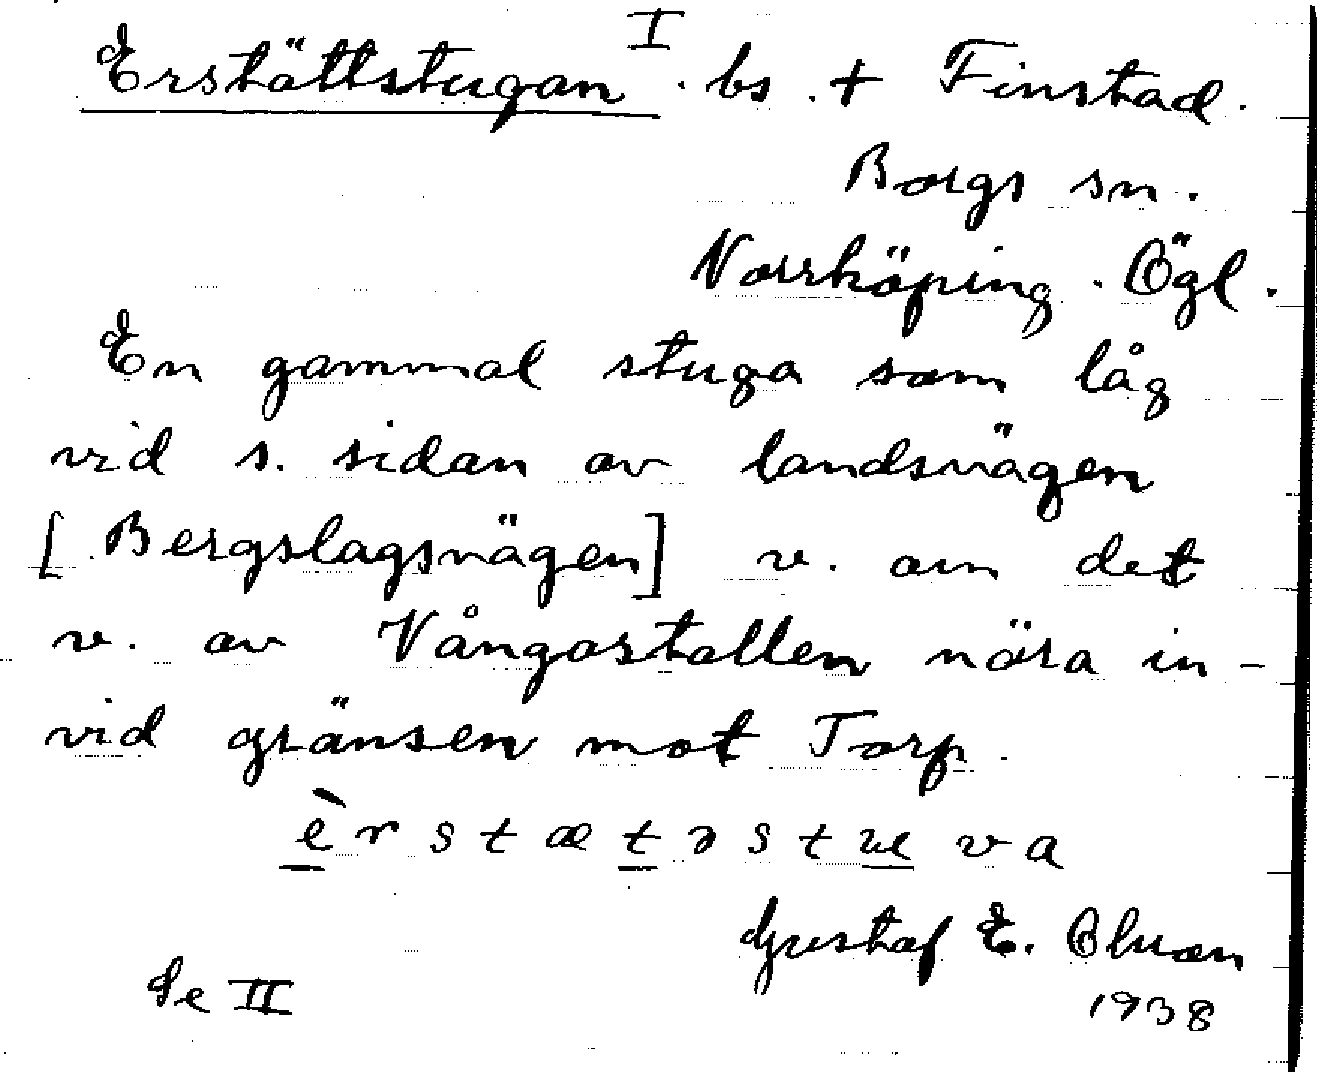 Erstättstugan I. bs. + Finstad.
Borgs sn.
Norrköping. Ögl.
En gammal stuga som låg
vid s. sidan av landsvägen
[Bergslagsvägen] v. om det
v. av Vångastallen nära in-
vid gränsen mot Torp.
èrstætəstuva
Gustaf E.
Se II 1938